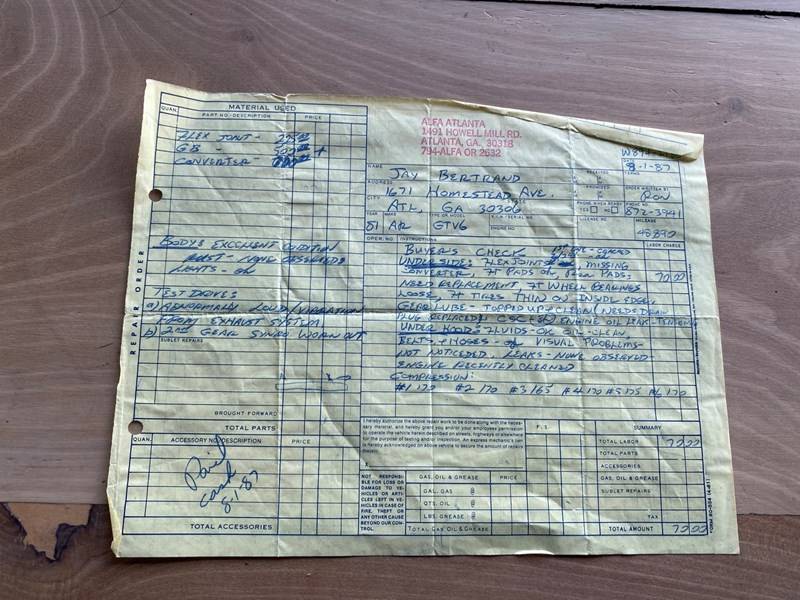 MATERIAL USED
QUAN.
PART NO.-DESCRIPTION
PRICE
FLEX JOINT-
CONVERTER-
BODY: EXCELLENT CONDITION
RUST - NONE OBSERVED
LIGHTS - OK
TEST DRIVE:
a) ABNORMALLY LOUD/VIBRATION
FROM EXHAUST SYSTEM
b) 2ND GEAR SYNRO WORN OUT
SUBLET REPAIRS
BROUGHT FORWARD
TOTAL PARTS
QUAN.
ACCESSORY NO./DESCRIPTION
PRICE
Paid
cash
8-1-87
TOTAL ACCESSORIES
REPAIR ORDER
ALFA ATLANTA
1491 HOWELL MILL RD.
ATLANTA, GA. 30318
794-ALFA OR 2632
NAME
JAY BERTRAND
RECEIVED
8-1-87
ADDRESS
1671 HOMESTEAD AVE.
PROMISED
ORDER WRITTEN BY
RON
CITY
ATL, GA 30306
PHONE WHEN READY
YES NO
PHONE NO.
872-3941
YEAR MAKE
81 AR
TYPE OR MODEL
GTV6
ENGINE NO.
LICENSE NO.
MILEAGE
OPER. NO.
INSTRUCTIONS
LABOR CHARGE
BUYER'S CHECK
UNDERSIDE: FLEX JOINT MISSING
CONVERTER, FT PADS OK, REAR PADS:
72.00
NEED REPLACEMENT, FT WHEEL BEARINGS
LOOSE, FT TIRES THIN ON INSIDE EDGE,
GEAR LUBE - TOPPED UP & CLEAN (NEEDS DRAIN
PLUG REPLACED) ENGINE OIL LEAK-
UNDER HOOD: FLUIDS-OK OIL-CLEAN
BELTS & HOSES-OK VISUAL PROBLEMS-
NOT NOTICEDED, LEAKS-NONE OBSERVED-
ENGINE RECENTLY CLEANED
COMPRESSION:
#1 170 #2 170 #3 165 #4 170 #5 175 #6 170
I hereby authorize the above repair work to be done along with the neces-
sary material, and hereby grant you and/or your employees permission
to operate the vehicle herein described on streets, highways or elsewhere
for the purpose of testing and/or inspection. An express mechanic's lien
is hereby acknowledged on above vehicle to secure the amount of repairs
thereto.
X
NOT RESPONSI-
BLE FOR LOSS OR
DAMAGE TO VE-
HICLES OR ARTI-
CLES LEFT IN VE-
HICLES IN CASE OF
FIRE, THEFT OR
ANY OTHER CAUSE
BEYOND OUR CON-
TROL.
GAS, OIL & GREASE
PRICE
GAL. GAS @
QTS. OIL @
LBS. GREASE @
TOTAL GAS OIL & GREASE
SUMMARY
TOTAL LABOR
72.00
TOTAL PARTS
ACCESSORIES
GAS, OIL & GREASE
SUBLET REPAIRS
TAX
TOTAL AMOUNT
72.00